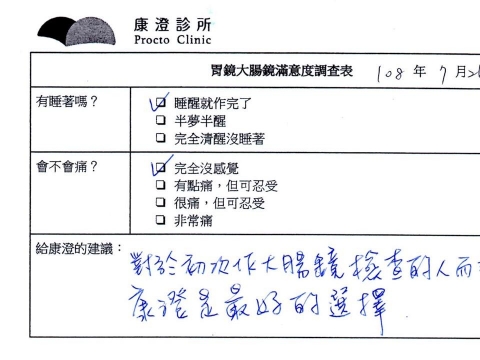 康澄診所
Procto Clinic
胃鏡大腸鏡滿意度調查表 108 年 7 月
有睡著嗎？
睡醒就作完了
半夢半醒
完全清醒沒睡著
會不會痛？
完全沒感覺
有點痛，但可忍受
很痛，但可忍受
非常痛
給康澄的建議：
對於初次作大腸鏡檢查的人而
康澄是最好的選擇